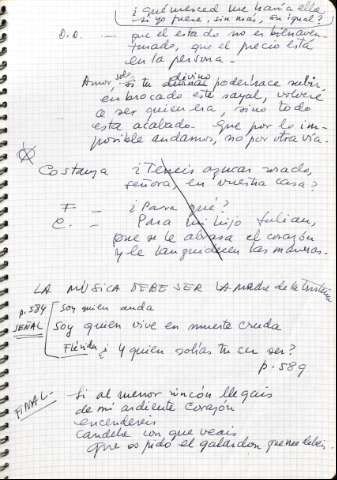 ¿qué merced me haría ella
si yo fuera, sin más, su igual?
D.D. — que el estado no es bienaven-
turado, que el precio está
en la persona.
Amor, sólo si tu divino poder hace subir
en brocado este sayal, volveré
a ser quien era, si no todo
está acabado. Que por lo im-
posible andamos, no por otra vía.
Costanza ¿Tenéis azúcar rosado,
señora, en vuestra casa?
F. — ¿Para qué?
C. — Para mi hijo Julián,
que se le abrasa el corazón
y le languidecen las manos.
LA MÚSICA DEBE SER LA MADRE de la tristeza
p. 584 Soy quien anda
SEÑAL Soy quien vive en muerte cruda
Flérida ¿Y quién solías tú ser?
p. 589
FINAL — Si al menor rincón llegáis
de mi ardiente corazón
encenderéis
candela con que veáis
que os pido el galardón que me debéis.